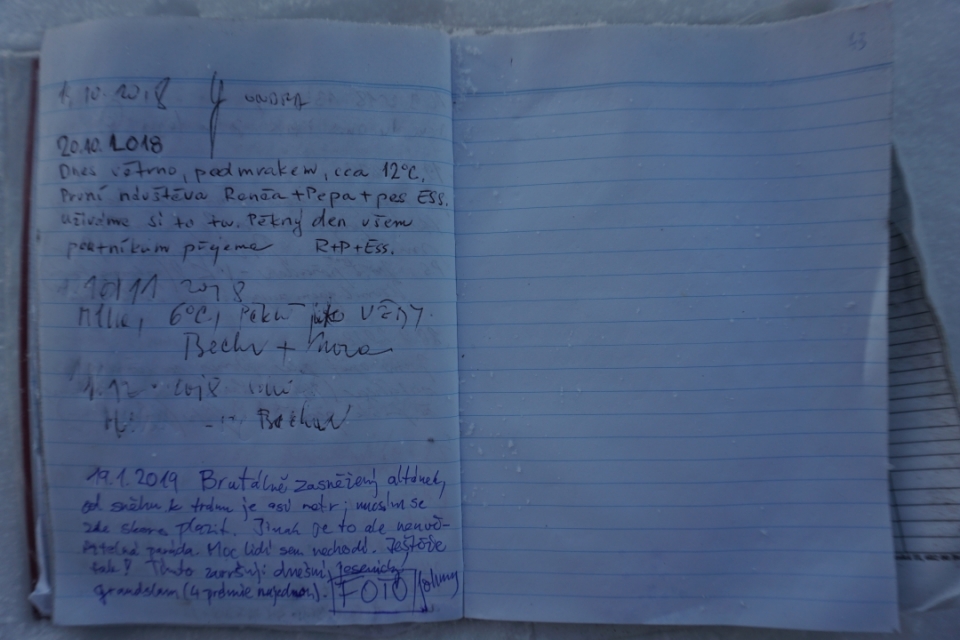 63
1.10.2018 ONDRA
20.10.2018
Dnes větrno, podmrakem, cca 12°C.
První návštěva Ronča+Pepa+pes Ess.
užíváme si to tu. Pěkný den všem
poutníkům přejeme R+P+Ess.
10/11 2018
Mlha, 6°C, Pěkně jako VŽDY.
1.12. 2018
19.1.2019 Brutálně zasněžený altánek,
od sněhu k trámu je asi metr; musím se
zde skoro plazit. Jinak je to ale neuvě-
řitelná paráda. Moc lidí sem nechodí. Ještěže
tak! Tímto završuji dnešní jesenický
grandslam (4 prémie najednou). FOTO